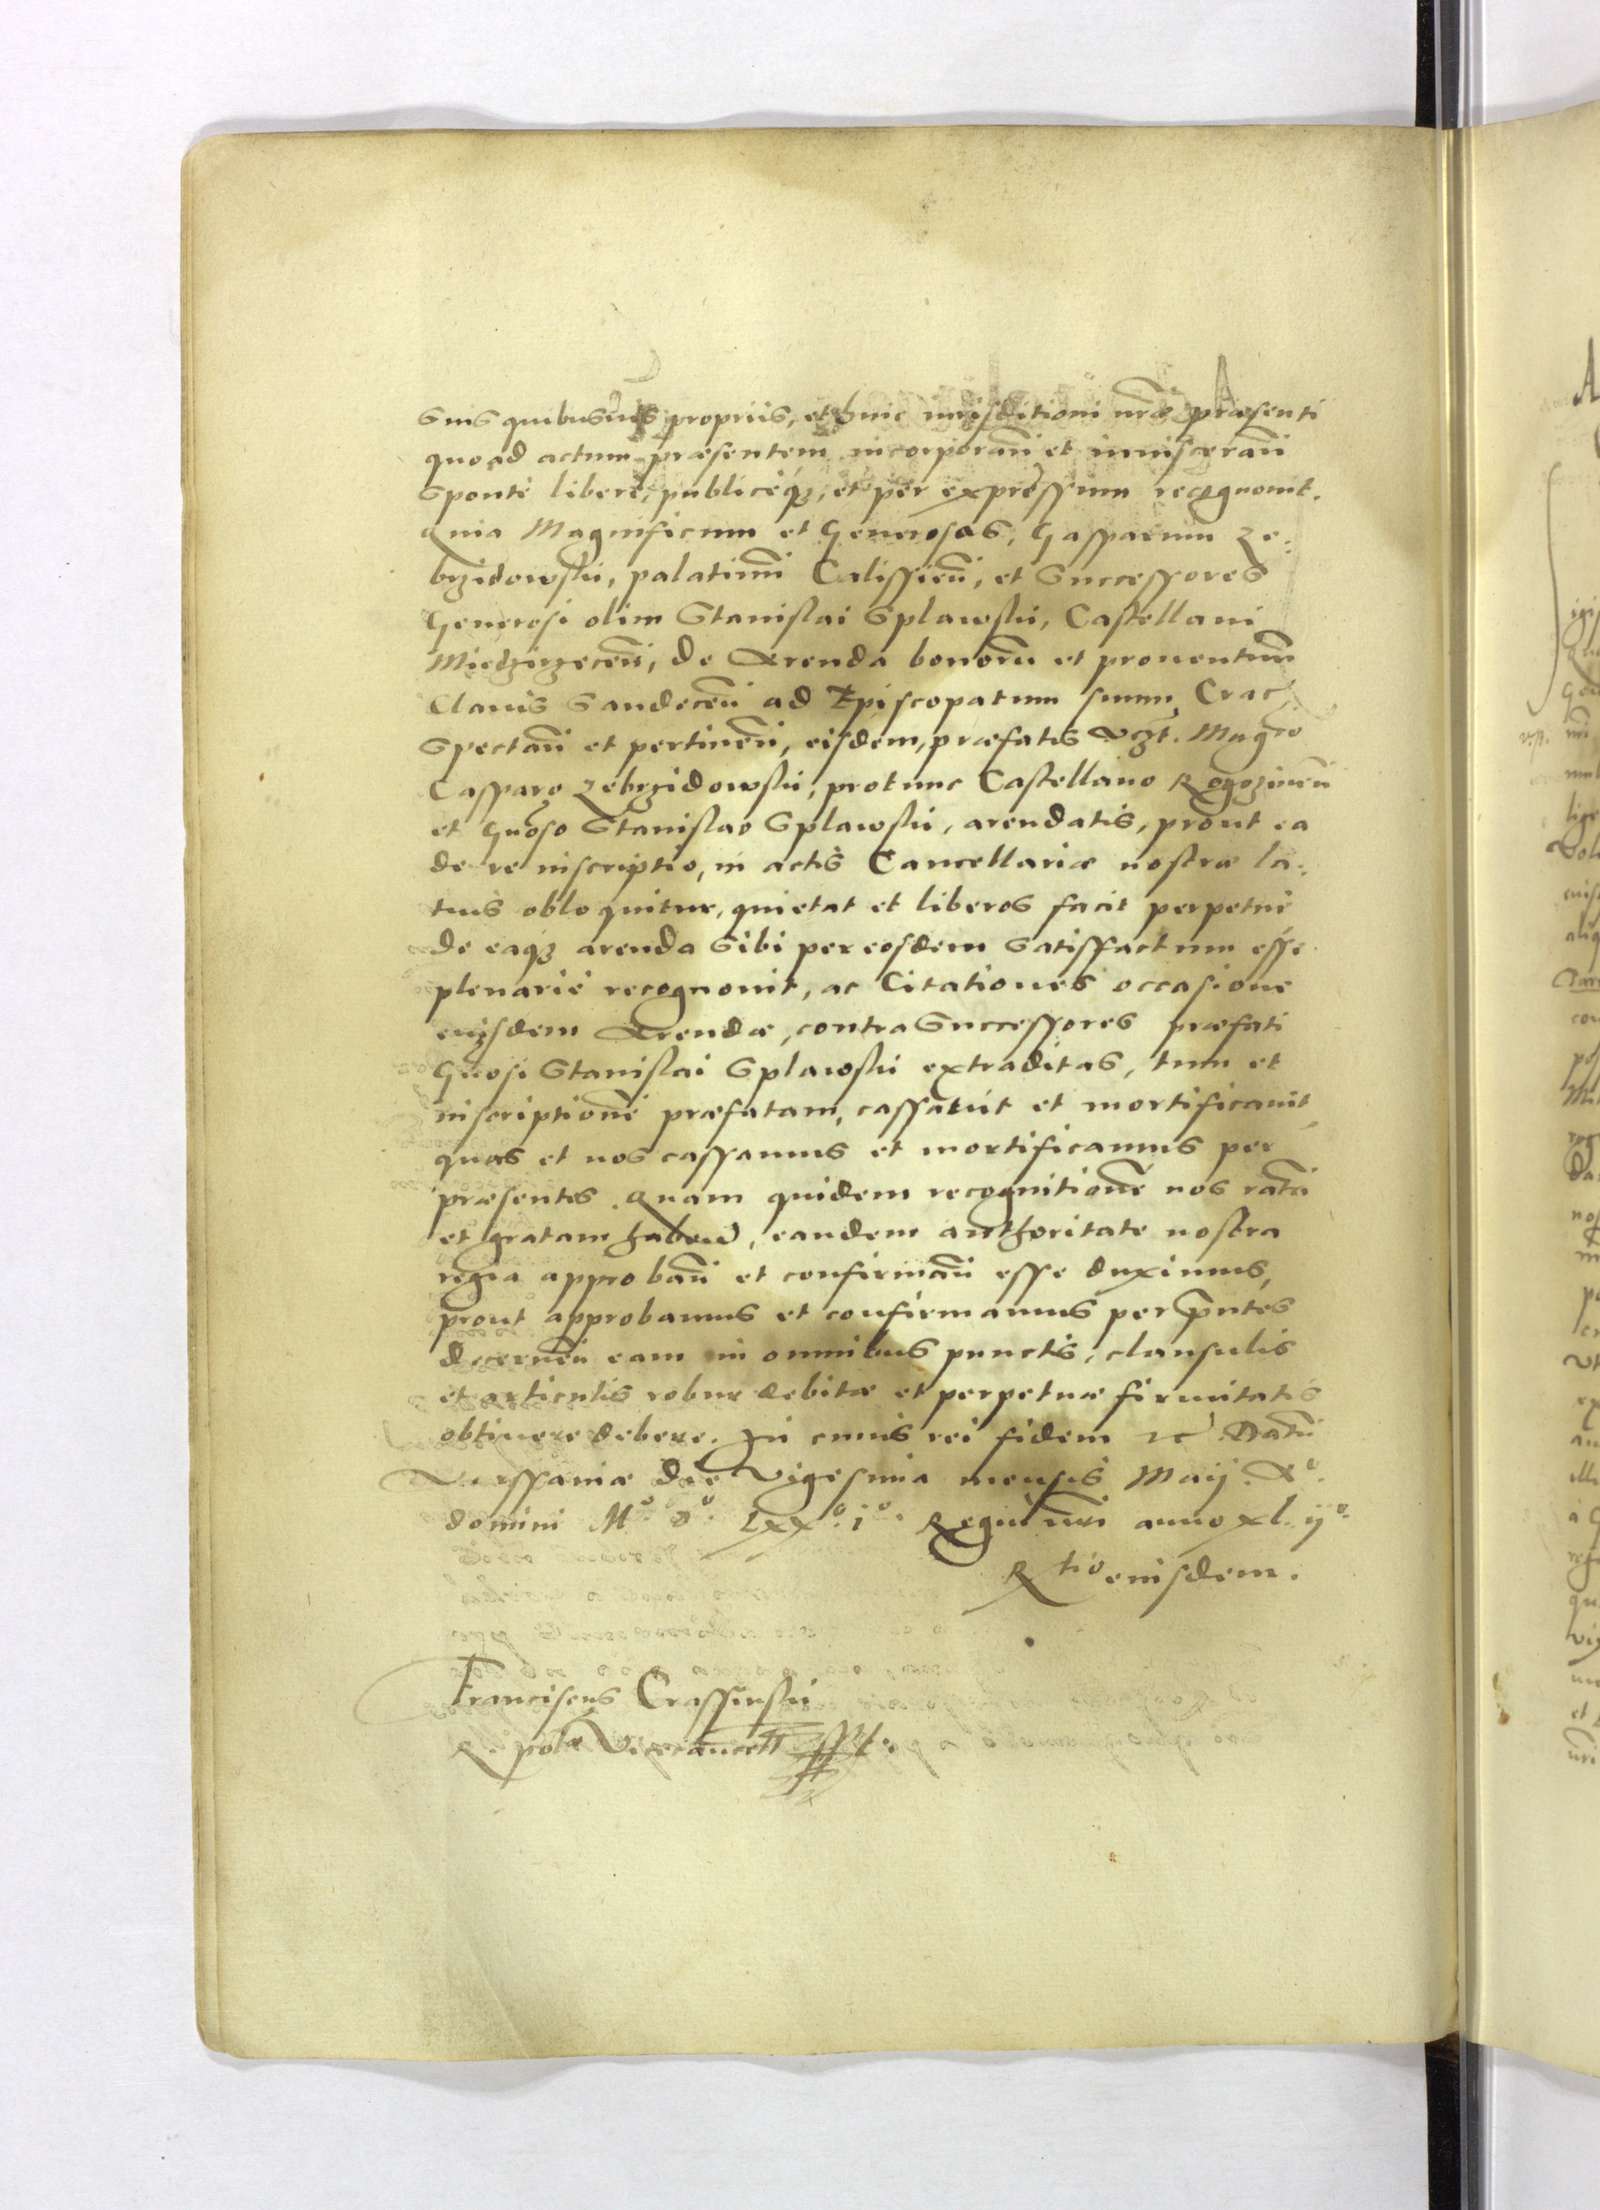 suis quibusuis propriis, et huic iurisditioni nr̃æ præsenti
quoad actum præsentem incorporan̄ et inuisceran̄
sponte libere, publiceq₃, et per expressum recognouit.
Quia Magnificum et Generosos, Gasparum Ze-
brzidowski, palatinum̄ Calissien̄, et Successores
Generosi olim Stanislai Splawski, Castellani
Miedzirzecen̄, de Arenda bonorū et prouentuum̄
Clauis Sandecen̄ ad Episcopatum suum Crac.
Spectan̄ et pertinen̄, eisdem, præfatis vczt. Magco
Casparo Zebrzidowski, protunc Castellano Rogozinen̄
et Gnoso Stanislao Splawski, arendatis, prout ea
de re inscriptio, in actis Cancellariæ nostræ la-
tius obloquitur, quietat et liberos facit perpetue
de eaq₃ arenda sibi per eosdem satisfactum esse
plenarie recognouit, ac Citationes occasione
eiusdem Arendæ, contra Successores præfati
Gnosi Stanislai Splawski extraditas, tum et
inscriptionē præfatam, cassauit et mortificauit
quas et nos cassamus et mortificamus per
præsentes. Quam quidem recognitionē nos ratā
et gratam haben̄, eandem authoritate nostra
regia approban̄ et confirman̄ esse duximus,
prout approbamus et confirmamus per pn̄tes
decernen̄ eam in omnibus punctis, clausulis
et articulis robur debitæ et perpetuæ firmitatis
obtinere debere. In cuius rei fidem etc. Datū
Varssauiæ die vigesima mensis Maij. Aº.
domini Mº. Dº. LXXº. iº. Regni nr̄i anno xl. ijº.
Rtio eiusdem.
Franciscus Crassinski
R. polæ Vicecancell sst.